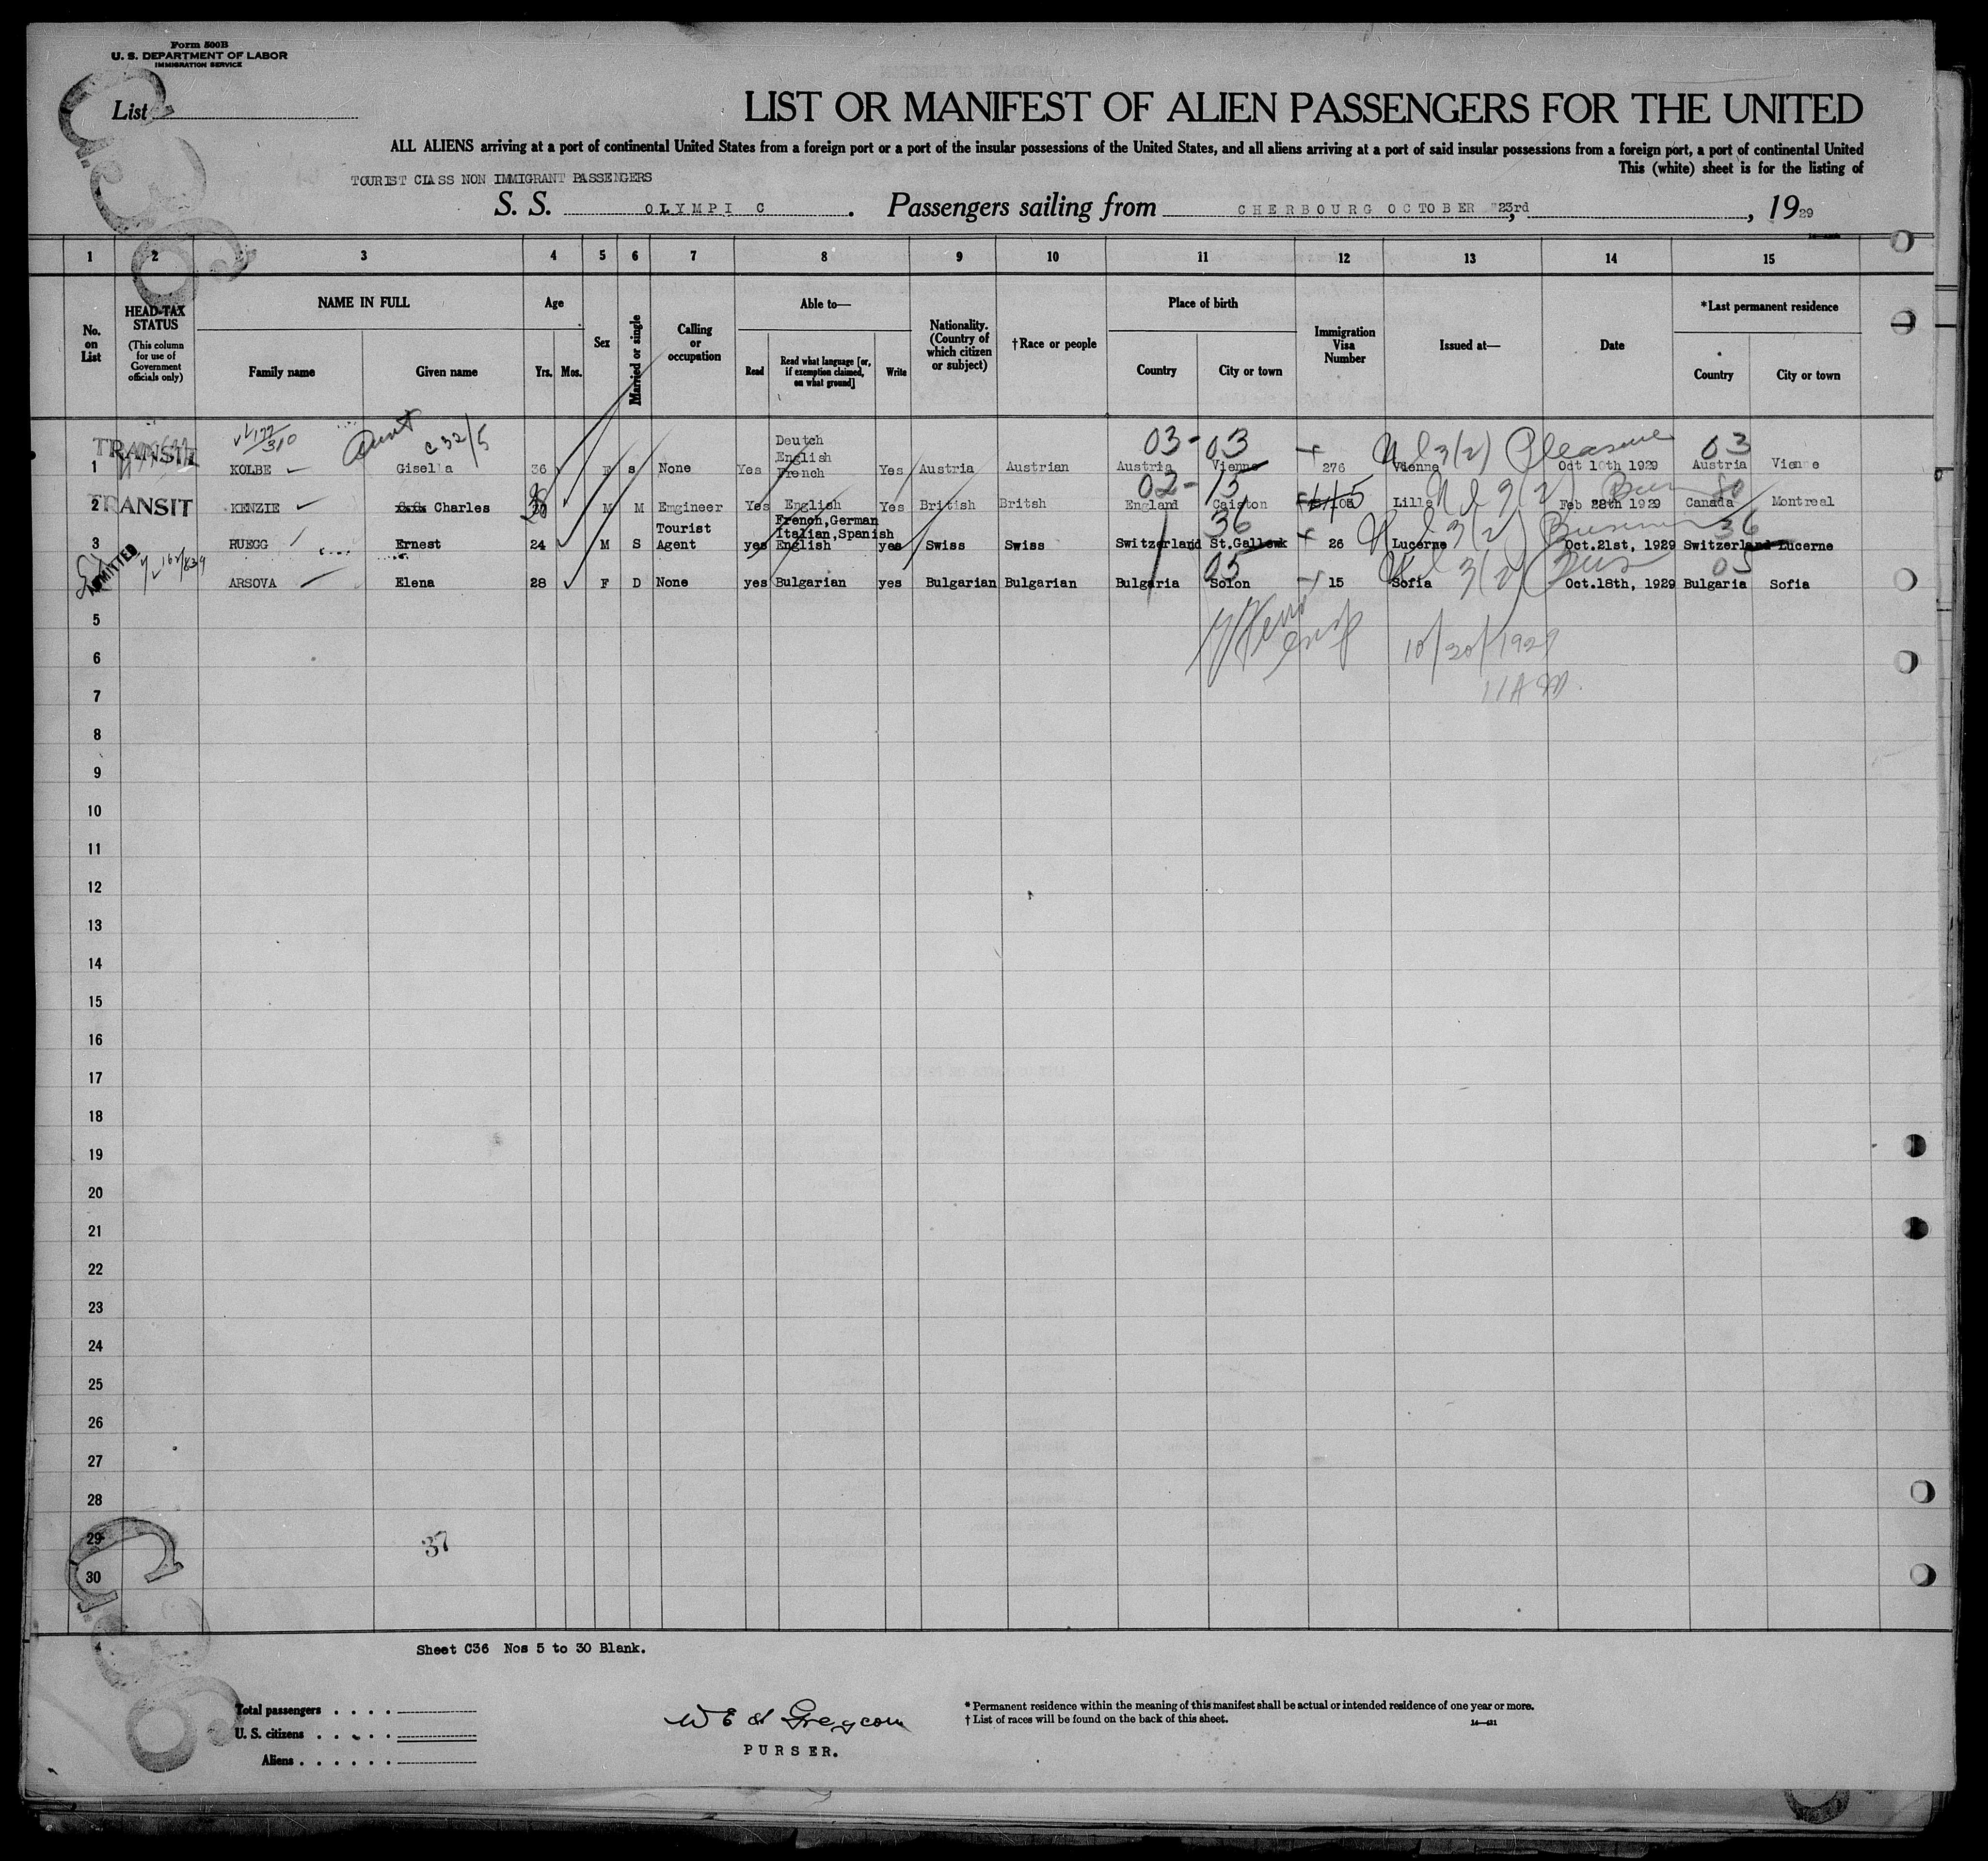 Form 500B
U. S. DEPARTMENT OF LABOR
IMMIGRATION SERVICE
List
LIST OR MANIFEST OF ALIEN PASSENGERS FOR THE UNITED
ALL ALIENS arriving at a port of continental United States from a foreign port or a port of the insular possessions of the United States, and all aliens arriving at a port of said insular possessions from a foreign port, a port of continental United
This (white) sheet is for the listing of
TOURIST CLASS NON IMMIGRANT PASSENGERS
S. S. OLYMPIC. Passengers sailing from CHERBOURG OCTOBER 23rd, 1929
1 2 3 4 5 6 7 8 9 10 11 12 13 14 15
No. on List
HEAD-TAX STATUS
(This column for use of Government officials only)
NAME IN FULL
Family name Given name
Age
Yrs. Mos.
Sex
Married or single
Calling or occupation
Able to—
Read
Read what language [or, if exemption claimed, on what ground]
Write
Nationality. (Country of which citizen or subject)
†Race or people
Place of birth
Country City or town
Immigration Visa Number
Issued at—
Date
*Last permanent residence
Country City or town
Aunt C 32/5
03- 03 Pleasure 03
TRANSIT
1 KOLBE Gisella 36 F s None Yes Deutch English French Yes Austria Austrian Austria Vienne 276 Vienne Oct 10th 1929 Austria Vienne
02- 15
TRANSIT
2 KENZIE Charles M M Engineer Yes English Yes British Britsh England Caiston 105 Lille Feb 28th 1929 Canada Montreal
36 36
3 RUEGG Ernest 24 M S Tourist Agent yes French,German Italian,Spanish English yes Swiss Swiss Switzerland St.Gallowk 26 Lucerne Oct.21st, 1929 Switzerland Lucerne
05 05
ADMITTED
ARSOVA Elena 28 F D None yes Bulgarian yes Bulgarian Bulgarian Bulgaria Solon 15 Sofia Oct.18th, 1929 Bulgaria Sofia
5
6
10/30/1929
7
11 AM.
8
9
10
11
12
13
14
15
16
17
18
19
20
21
22
23
24
25
26
27
28
29
37
30
Sheet C36 Nos 5 to 30 Blank.
Total passengers
U. S. citizens
Aliens
PURSER.
* Permanent residence within the meaning of this manifest shall be actual or intended residence of one year or more.
† List of races will be found on the back of this sheet.